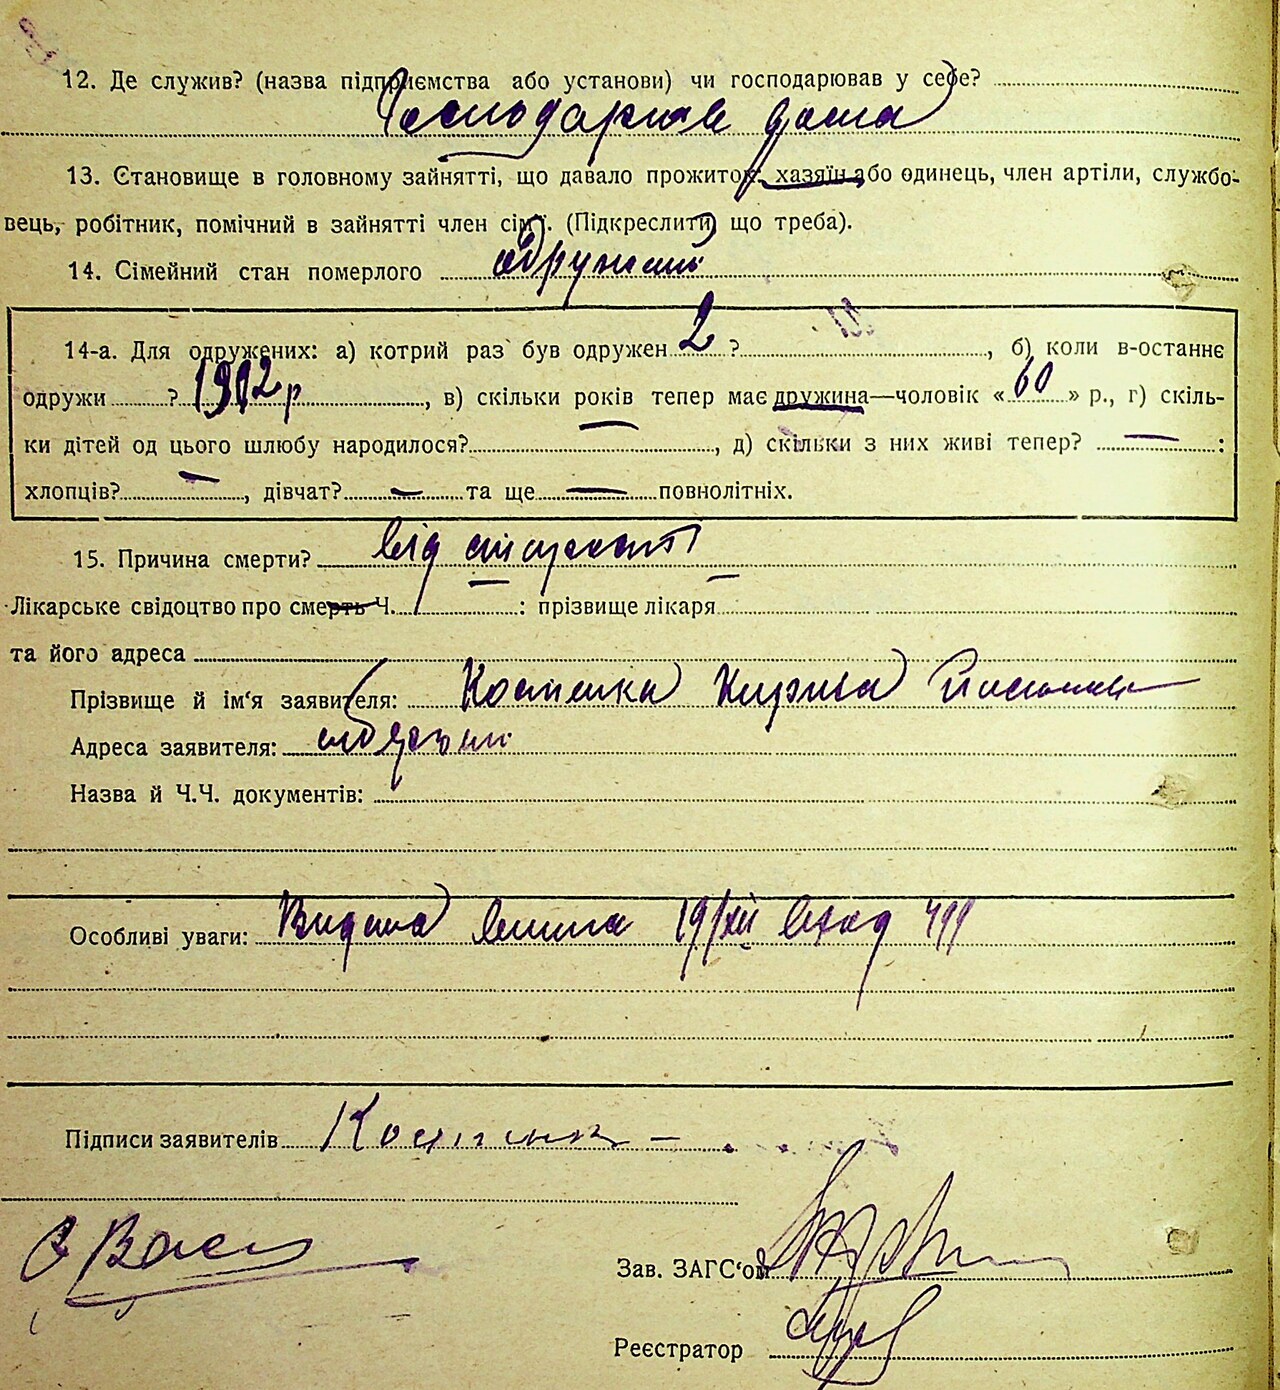 12. Де служив? (назва підприємства або установи) чи господарював у себе?
Господарював дома
13. Становище в головному зайнятті, що давало прожиток: хазяїн або одинець, член артіли, службо-
вець, робітник, помічний в зайнятті член сім'ї. (Підкреслити) що треба).
14. Сімейний стан померлого одружений
14-а. Для одружених: а) котрий раз був одружен 2 ?, б) коли в-останнє
одружи ? 1912 р, в) скільки років тепер має дружина—чоловік « 60 » р., г) скіль-
ки дітей од цього шлюбу народилося? —, д) скільки з них живі тепер? — :
хлопців? —, дівчат? — та ще — повнолітніх.
15. Причина смерти? від старости
Лікарське свідоцтво про смерть Ч. — : прізвище лікаря —
та його адреса
Прізвище й ім'я заявителя: Костенка
Адреса заявителя:
Назва й Ч.Ч. документів:
Особливі уваги: Видана 19/XII
Підписи заявителів Костенк
Зав. ЗАГС'ом
Реєстратор